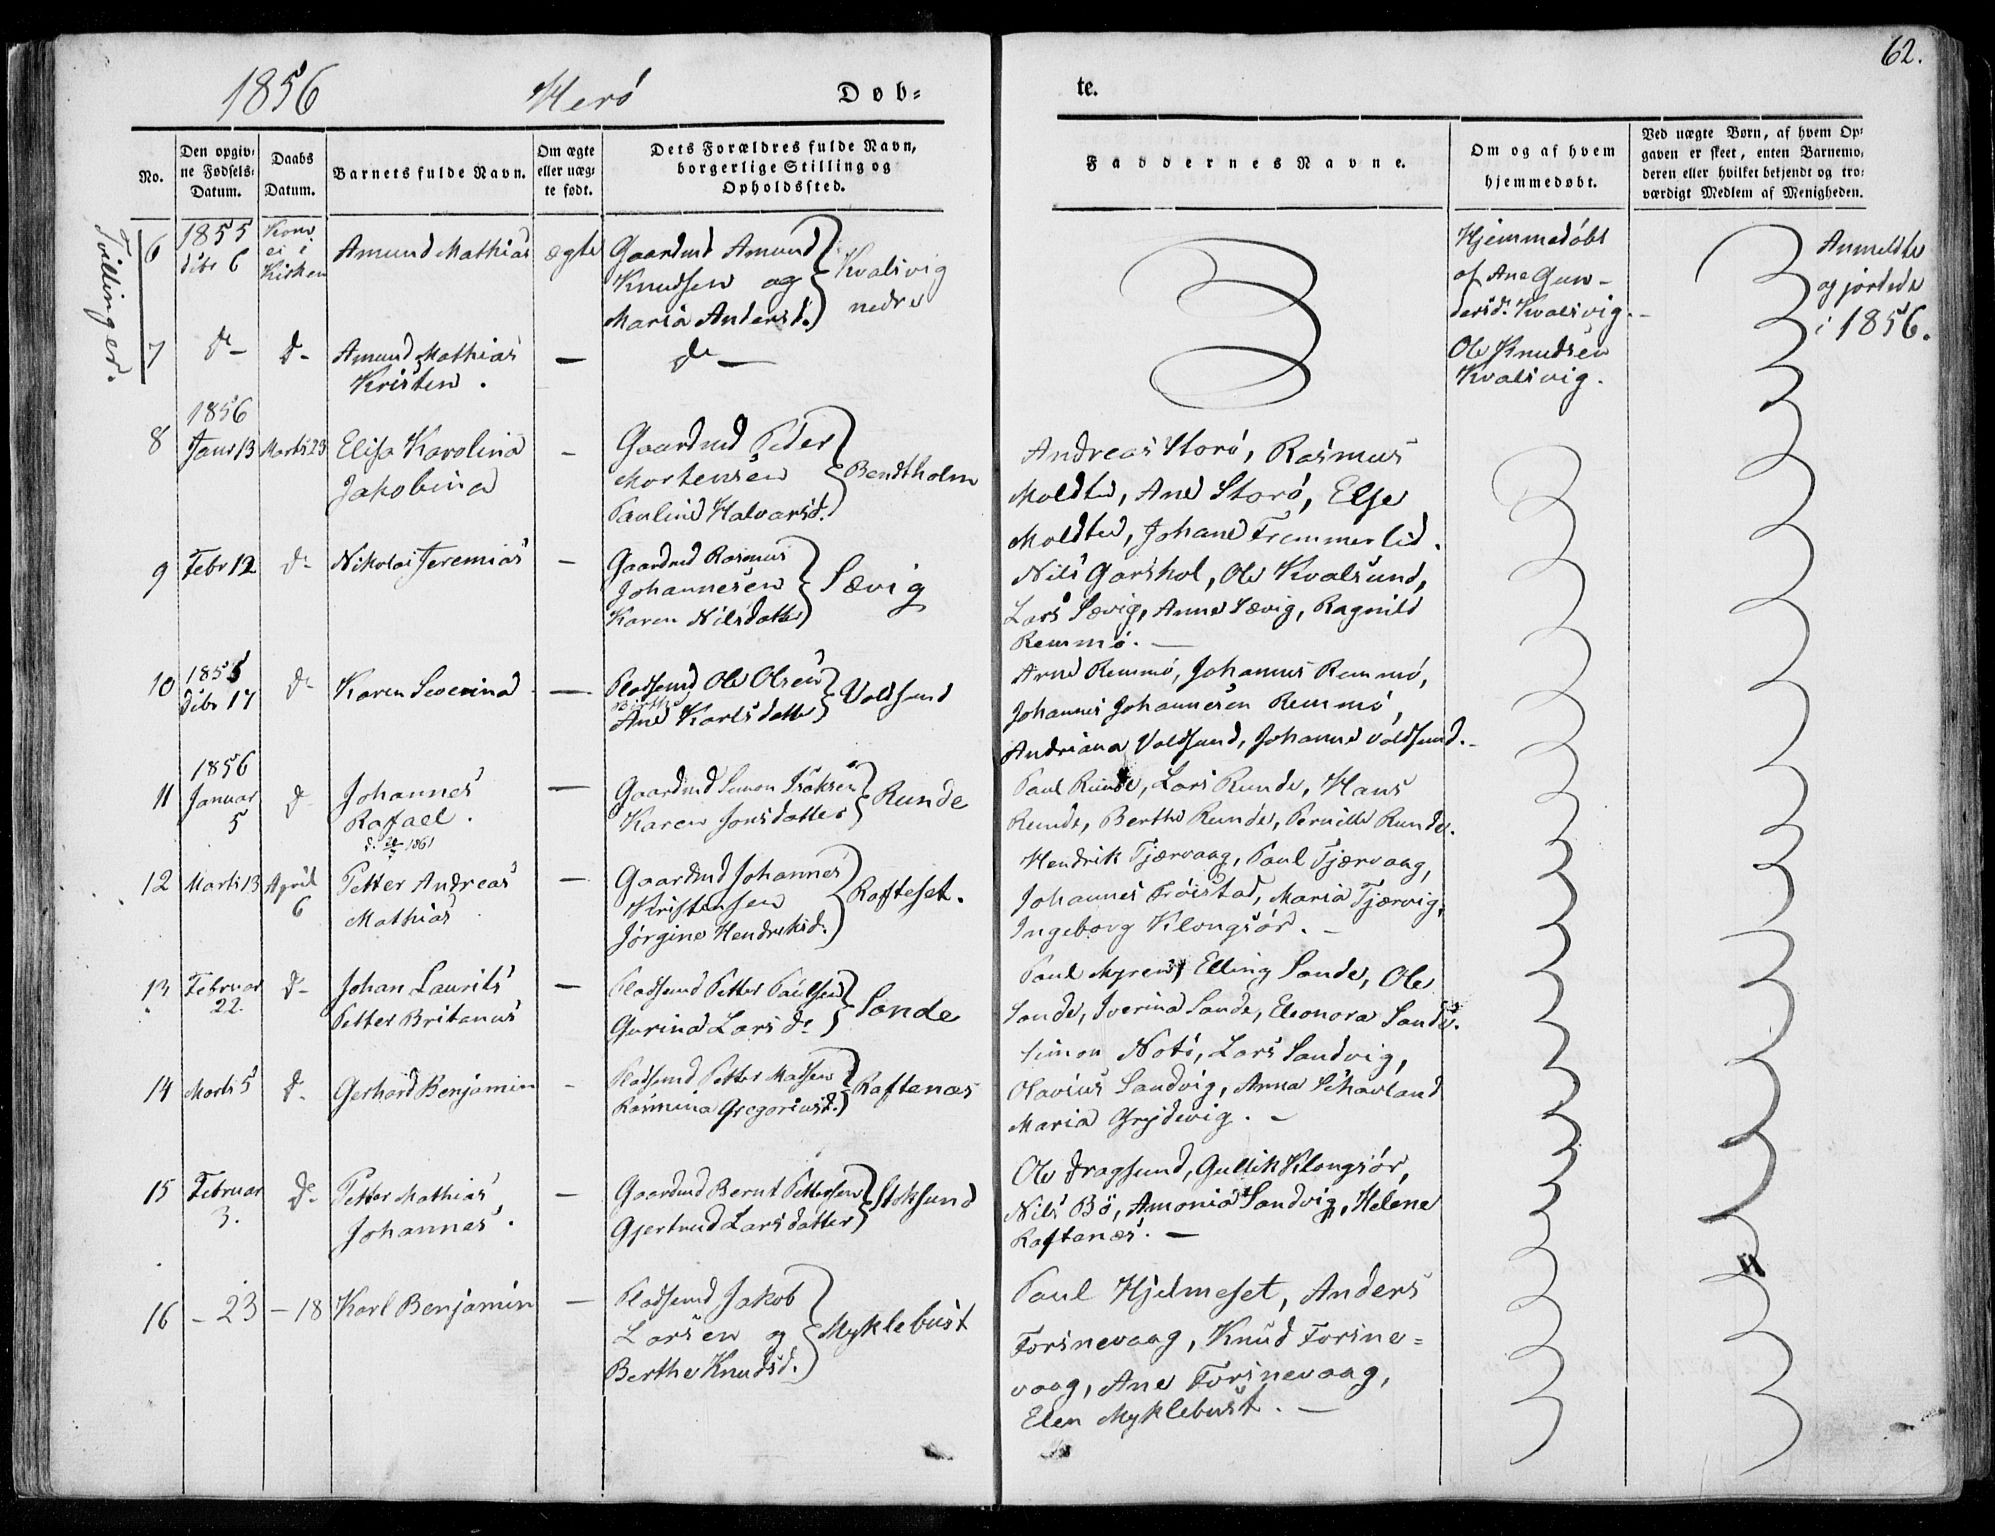 62.
1856 Herö Døb-
te.
No.
Den opgivne Fødsels-Datum.
Daabs Datum.
Barnets fulde Navn.
Om ægte eller uægte født.
Dets Forældres fulde Navn, borgerlige Stilling og Opholdssted.
Faddernes Navne.
Om og af hvem hjemmedøbt.
Ved uægte Børn, af hvem Opgaven er skeet, enten Barnemoderen eller hvilket bekjendt og troværdigt Medlem af Menigheden.
Tvillinger.
6 1855 Kom Hjemmedöbt Anmeldte
Dbr 6 ei i Kirken Amund Mathias ægte Gaardmd Amund
Knudsen og Kvalsvig
Maria Andersd. nedre
af Ane Gun-
dersd. Kvalsvig.
og jordede
i 1856.
7 d- d- Amund Mathias — d- —
Kristen.
Ole Knudsen
Kvalsvig.
1856
8 Janr 13 Marts 23 Elisa Karolina - Gaardmd Peder
Jakobina Mortensen Bendtholm
Pauline Halvarsd.
Andreas Storö, Rasmus
Moldtu, Ane Storö, Else
Moldtu, Johane Fremmerlid.
9 Febr 12 d- Nikolai Jeremias — Gaardmd Rasmus
Johannesen Sævig
Karen Nilsdatter
Nils Garshol, Ole Kvalsund,
Lars Sævig, Anne Sævig, Ragnild
Remmö. —
10 1855
Dbr 17 d- Karen Severina — Pladsmd Ole Olsen
Berthe
Ane Karlsdatter Voldsund
Arne Remmö, Johannes Remmö,
Johannes Johannesen Remmö,
Andriana Voldsund, Johanne Voldsund.-
1856
11 Januar 5 d- Johannes — Gaardmd Simon Isaksen
Rafael. Karen Jonsdatter Runde
1861
Paul Runde, Lars Runde, Hans
Runde, Berthe Runde, Pernille Runde.
12 Marts 13 April 6 Petter Andreas — Gaardmd Johannes
Mathias Kristensen Rafteset.
Jörgine Hendriksd.
Hendrik Tjærvaag, Paul Tjærvaag,
Johannes Fröistad, Maria Tjærvig,
Ingeborg Klongsör. -
13 Februar 22. d- Johan Laurits — Pladsmd Petter Paulsen
Petter Britanus Gurina Lars dr Sande
Paul Myren, Elling Sande, Ole
Sande, Iverina Sande, Eleonora Sande.
14 Marts 5 d- Gerhard Benjamin - Pladsmd Petter Madsen
Rasmina Gregoriusd. Raftenæs
Simon Notö, Lars Sandvig,
Olavius Sandvig, Anna Skavland
Maria Gryдevig. -
15 Februar 3. d- Petter Mathias — Gaardmd Bernt Pettersen
Johannes. Gjertrud Larsdatter Stoksund
Ole Dragsund, Gullik Klongsör,
Nils Bö, Amonia Sandvig, Helene
Raftenæs. —
16 - 23 - 18 Karl Benjamin — Pladsmd Jakob
Larsen og Myklebust
Berthe Knudsd.
Paul Hjelmeset, Anders
Torsnevaag, Knud Torsne-
vaag, Ane Torsnevaag,
Elen Myklebust. —